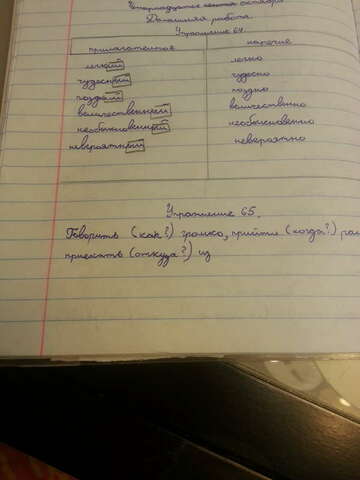 Домашняя работа.
Упражнение 64
прилагательное наречие
легкий легко
чудесный чудесно
поздний поздно
величественный величественно
необыкновенный необыкновенно
невероятный невероятно
Упражнение 65.
Говорить (как?) громко, прийти (когда?)
приехать (откуда?) из